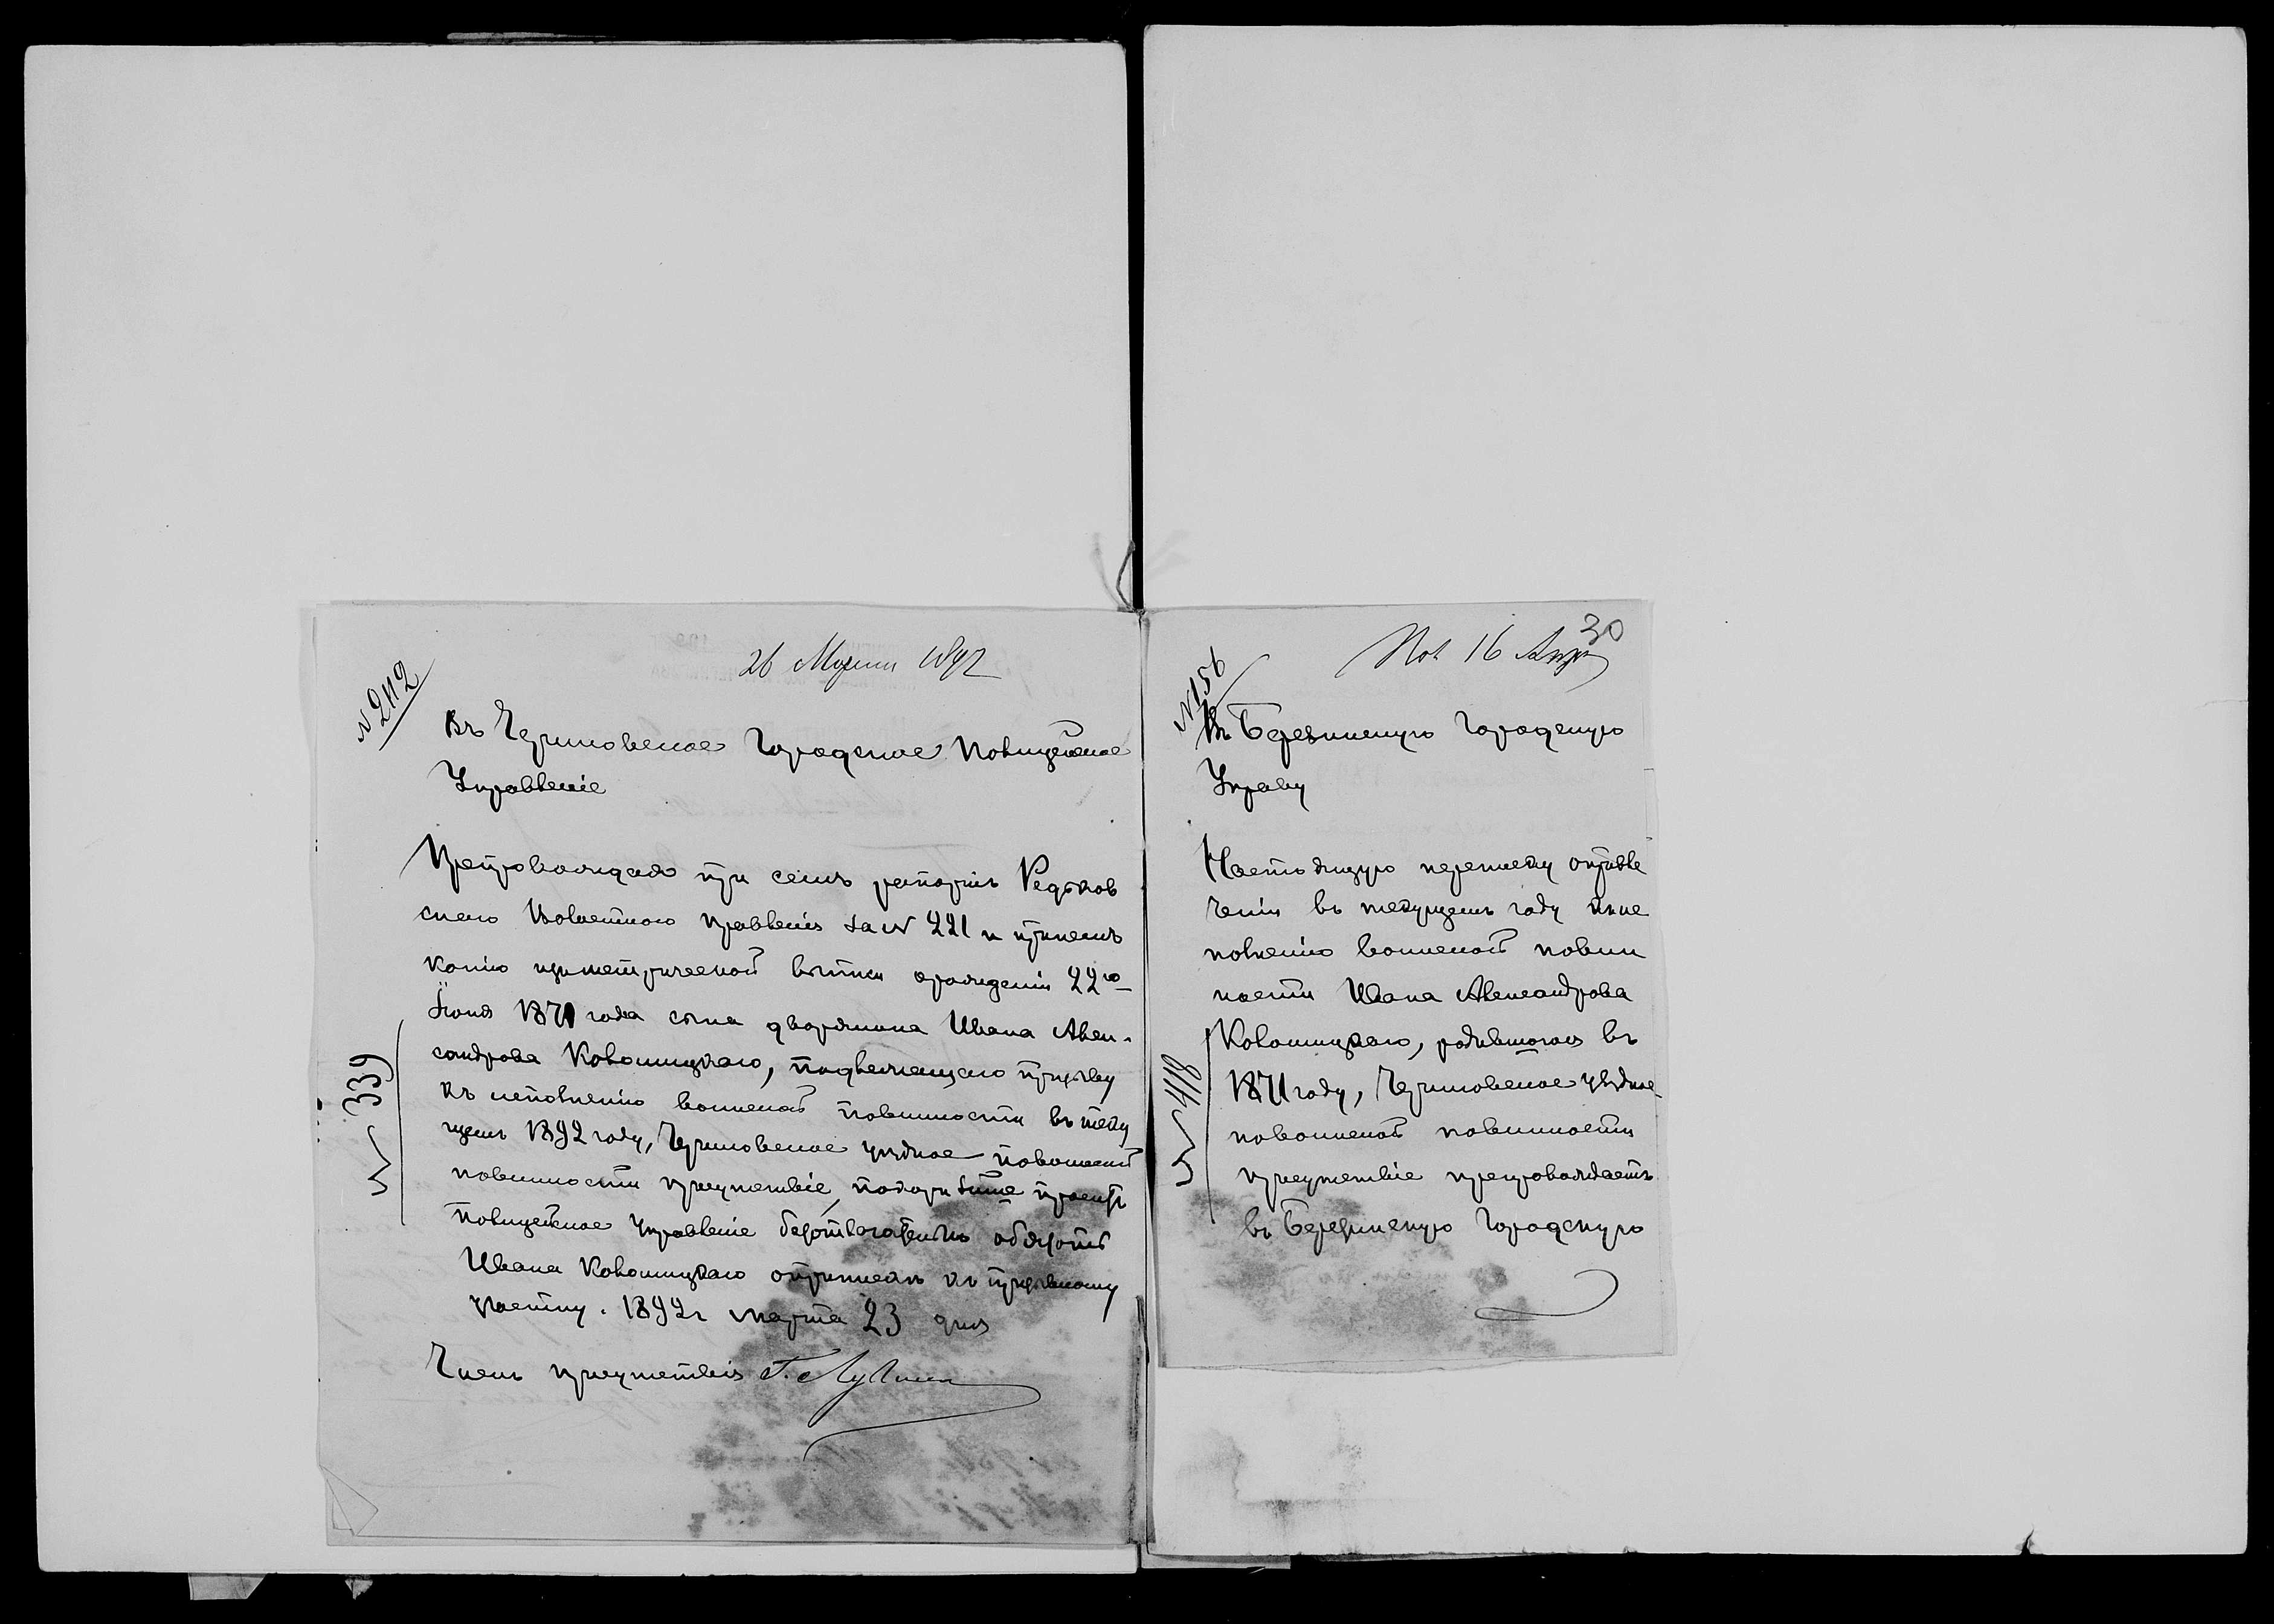 26 Марта 1892
№ 2112
Въ Черниговское Городское Полицейское
Управленіе
Препровождая при семъ рапортъ Редьков
скаго Волостнаго Правленія за № 221 и при немъ
копію изъ метрической выписи о рожденіи 22го
Іюня 1871 года сына дворянина Ивана Алек-
сандрова Коломицкаго, подлежащаго призыву
къ исполненію воинской повинности въ теку
щемъ 1892 году, Черниговское уѣздное по воинской
повинности присутствіе, проситъ
Полицейское Управленіе безотлагательно обязать
Ивана Коломицкаго о припискѣ къ призывному
участку. 1892 г. марта 23 дня
Членъ присутствія
№ 339
30
Пол 16 Апр
№ 156
Въ Березинскую Городскую
Управу
Настоящую переписку о привле
ченіи въ текущемъ году къ ис
полненію воинской повин
ности Ивана Александрова
Коломицкаго, родившагося въ
1871 году, Черниговское уѣздное
по воинской повинности
присутствіе препровождаетъ
въ Березинскую Городскую
№ 418